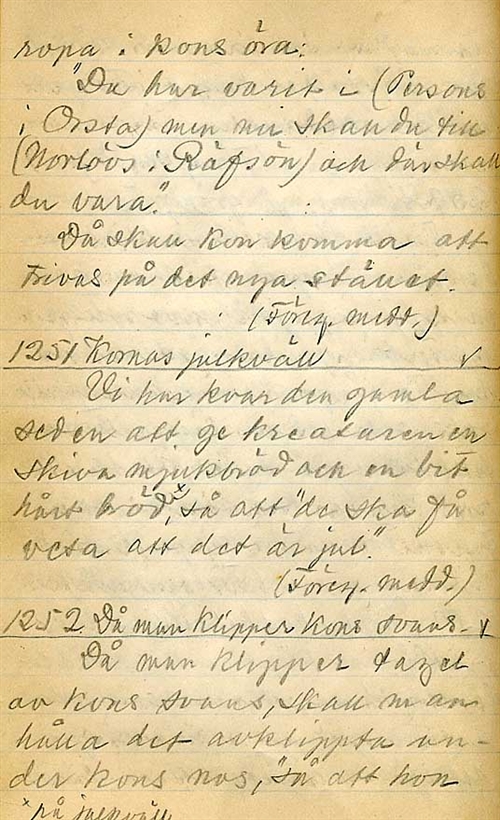 ropa i kons öra:
"Du har varit i (Persons
i Orsta) men nu skall du till
(Norlövs i Räfsön) och där skall
du vara."
Då skall kon komma att
trivas på det nya stället.
(Föreg. medd.)
1251 Kornas julkväll v
Vi har kvar den gamla
seden att ge kreaturen en
skiva mjukbröd och en bit
hårt bröd,x så att "de ska få
veta att det är jul."
(Föreg. medd.)
1252. Då man klipper kons svans. v
Då man klipper tagel
av kons svans, skall man
hålla det avklippta un-
der kons nos, "så att hon
x på julkväll